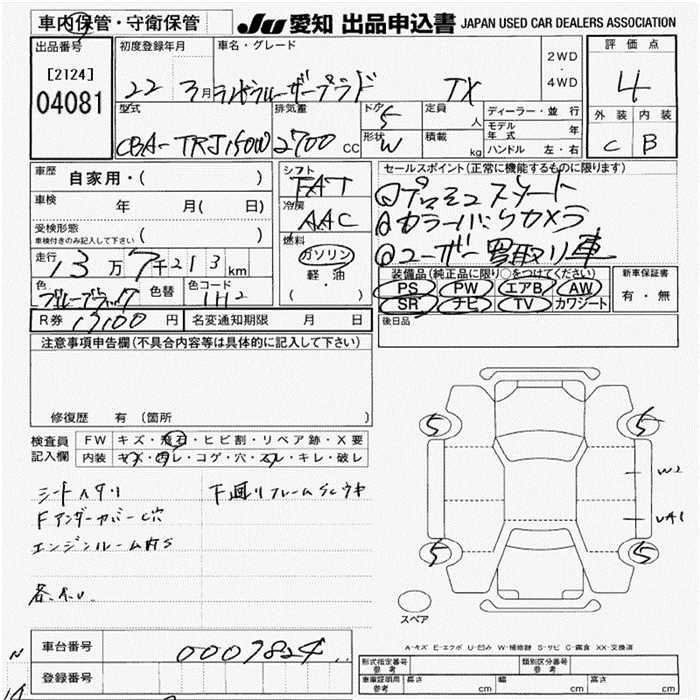 車内保管・守衛保管
JU 愛知 出品申込書 JAPAN USED CAR DEALERS ASSOCIATION
出品番号
[2124]
04081
初度登録年月
22 3月
車名・グレード
ランドクルーザープラド TX
2WD
・
4WD
評価点
4
外装 内装
C B
型式
CBA-TRJ150W
排気量
2700 CC
ドア
5
形状
W
定員
人
積載
kg
ディーラー・並行
モデル年式 年
ハンドル 左・右
車歴
自家用・( )
車検 年 月( 日)
受検形態
車検付きのみ記入して下さい ( )
走行
13万7千213km
色
ブルーブラック
色替
色コード
1H2
R券 13100 円
名変通知期限 月 日
シフト
FAT
冷房
AAC
燃料
ガソリン
軽油
( )
セールスポイント(正常に機能するものに限ります)
カラーバックカメラ
ユーザー買取り車
装備品(純正品に限り○をつけてください)
PS PW エアB AW
SR ナビ TV カワシート
新車保証書
有・無
後日品
注意事項申告欄(不具合内容等は具体的に記入して下さい)
修復歴 有 (箇所 )
検査員記入欄
FW キズ・飛石・ヒビ割・リペア跡・X要
内装 キズ・汚レ・コゲ・穴・スレ・キレ・破レ
シートヘタリ
下廻りフレームSCウキ
Fアンダーカバー C穴
エンジンルーム内S
5 5
W2
UA1
5 5
スペア
A-キズ E-エクボ U-凹み W-補修跡 S-サビ C-腐食 XX-交換済
車台番号 0007824
登録番号
型式指定番号 参考
類別区分番号 参考
車庫証明用 参考 長さ cm 幅 cm 高さ cm